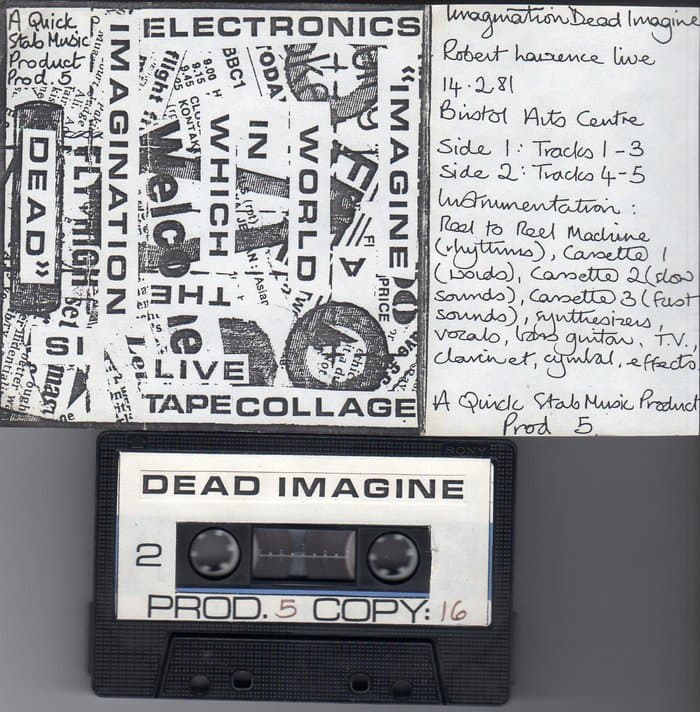 A Quick
Stab Music
Product
Prod. 5
IMAGINATION
DEAD"
IS
ELECTRONICS
"IMAGINE
A
WORLD
IN
WHICH
THE
LIVE
TAPE COLLAGE
BBC1
TODAY
9.00
9.15
9.45
flight
Welco
FLY HIGH
PRICE
Asian
Imagination Dead Imagine
Robert Lawrence live
14.2.81
Bristol Arts Centre
Side 1: Tracks 1-3
Side 2: Tracks 4-5
Instrumentation:
Reel to Reel Machine
(rhythms), Cassette 1
(words), Cassette 2 (slow
sounds), Cassette 3 (fast
sounds), synthesizers,
vocals, bass guitar, T.V.,
clarinet, cymbal, effects.
A Quick Stab Music Product
Prod 5.
SONY
DEAD IMAGINE
2
PROD. 5 COPY: 16